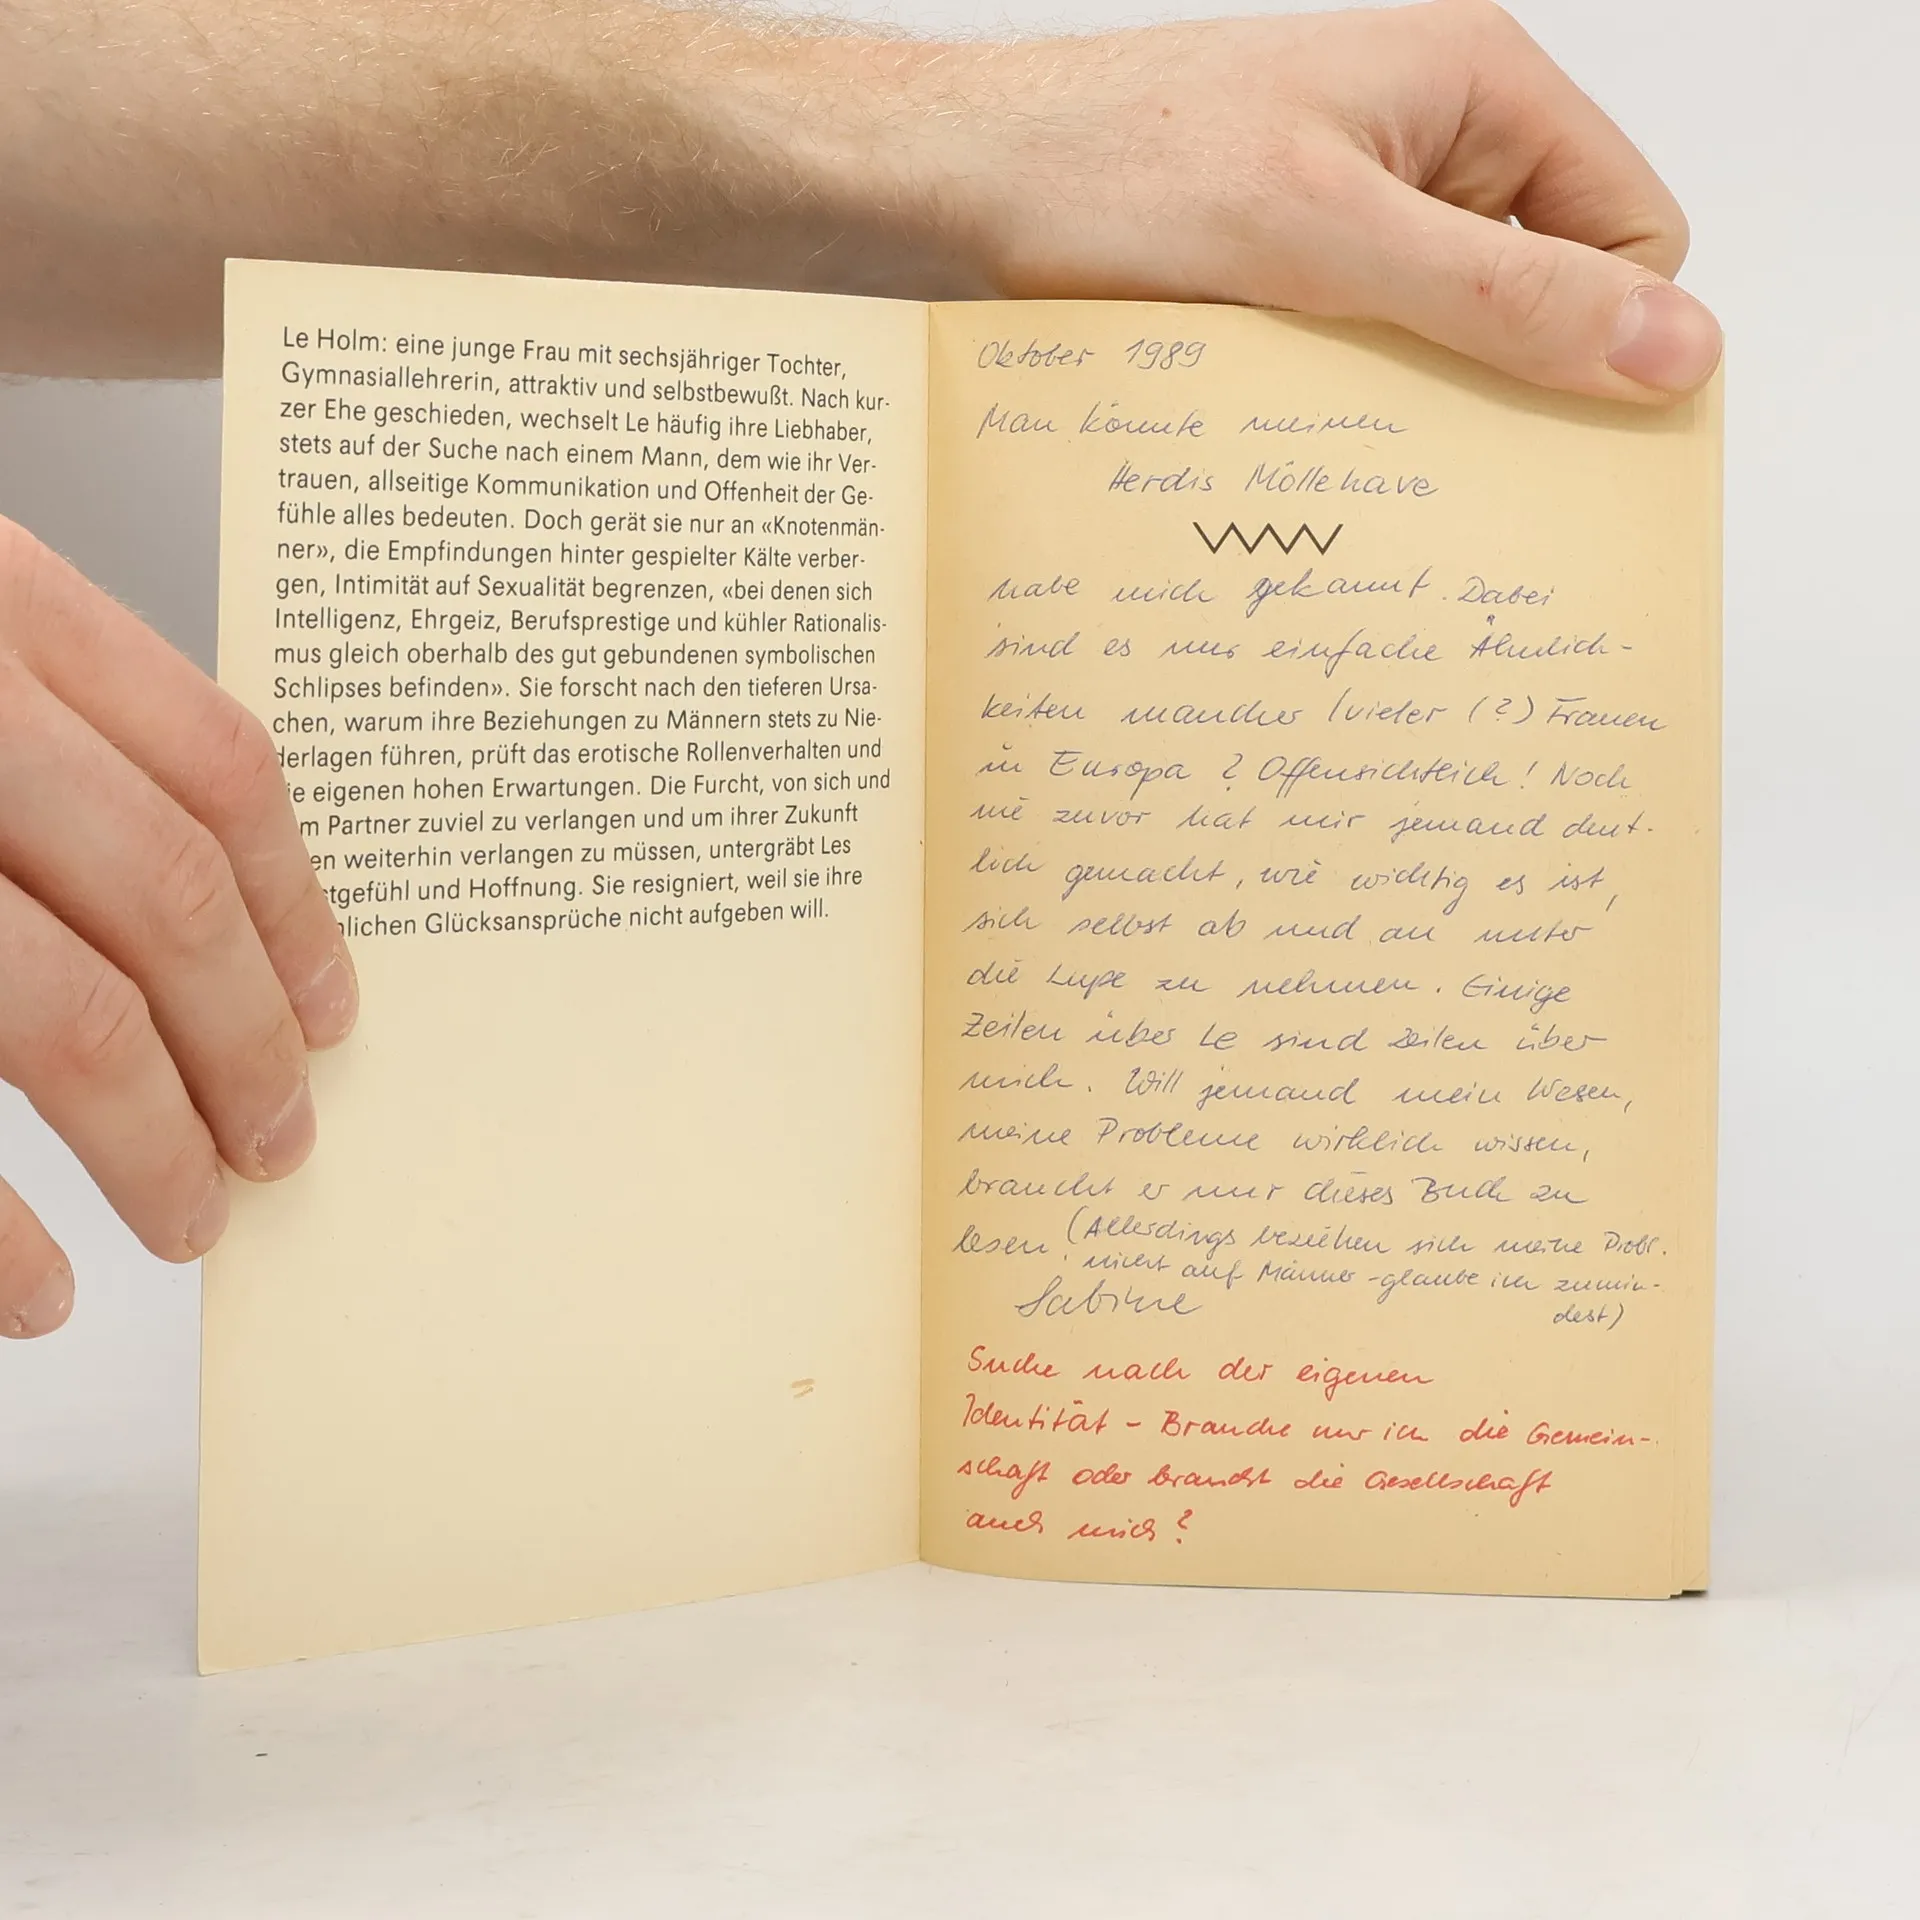 Le Holm: eine junge Frau mit sechsjähriger Tochter,
Gymnasiallehrerin, attraktiv und selbstbewußt. Nach kur-
zer Ehe geschieden, wechselt Le häufig ihre Liebhaber,
stets auf der Suche nach einem Mann, dem wie ihr Ver-
trauen, allseitige Kommunikation und Offenheit der Ge-
fühle alles bedeuten. Doch gerät sie nur an «Knotenmän-
ner», die Empfindungen hinter gespielter Kälte verber-
gen, Intimität auf Sexualität begrenzen, «bei denen sich
Intelligenz, Ehrgeiz, Berufsprestige und kühler Rationalis-
mus gleich oberhalb des gut gebundenen symbolischen
Schlipses befinden». Sie forscht nach den tieferen Ursa-
chen, warum ihre Beziehungen zu Männern stets zu Nie-
derlagen führen, prüft das erotische Rollenverhalten und
ie eigenen hohen Erwartungen. Die Furcht, von sich und
m Partner zuviel zu verlangen und um ihrer Zukunft
en weiterhin verlangen zu müssen, untergräbt Les
stgefühl und Hoffnung. Sie resigniert, weil sie ihre
nlichen Glücksansprüche nicht aufgeben will.
Oktober 1989
Man könnte meinen
Herdis Möllehave
habe mich gekannt. Dabei
sind es nur einfache Ähnlich-
keiten mancher / vieler (?) Frauen
in Europa ? Offensichtlich! Noch
nie zuvor hat mir jemand deut-
lich gemacht, wie wichtig es ist,
sich selbst ab und an unter
die Lupe zu nehmen. Einige
Zeilen über Le sind Zeilen über
mich. Will jemand mein Wesen,
meine Probleme wirklich wissen,
braucht er nur dieses Buch zu
lesen. (Allerdings beziehen sich meine Probl.
nicht auf Männer - glaube ich zumin-
dest)
Sabine
Suche nach der eigenen
Identität - Brauche nur ich die Gemein-
schaft oder braucht die Gesellschaft
auch mich?